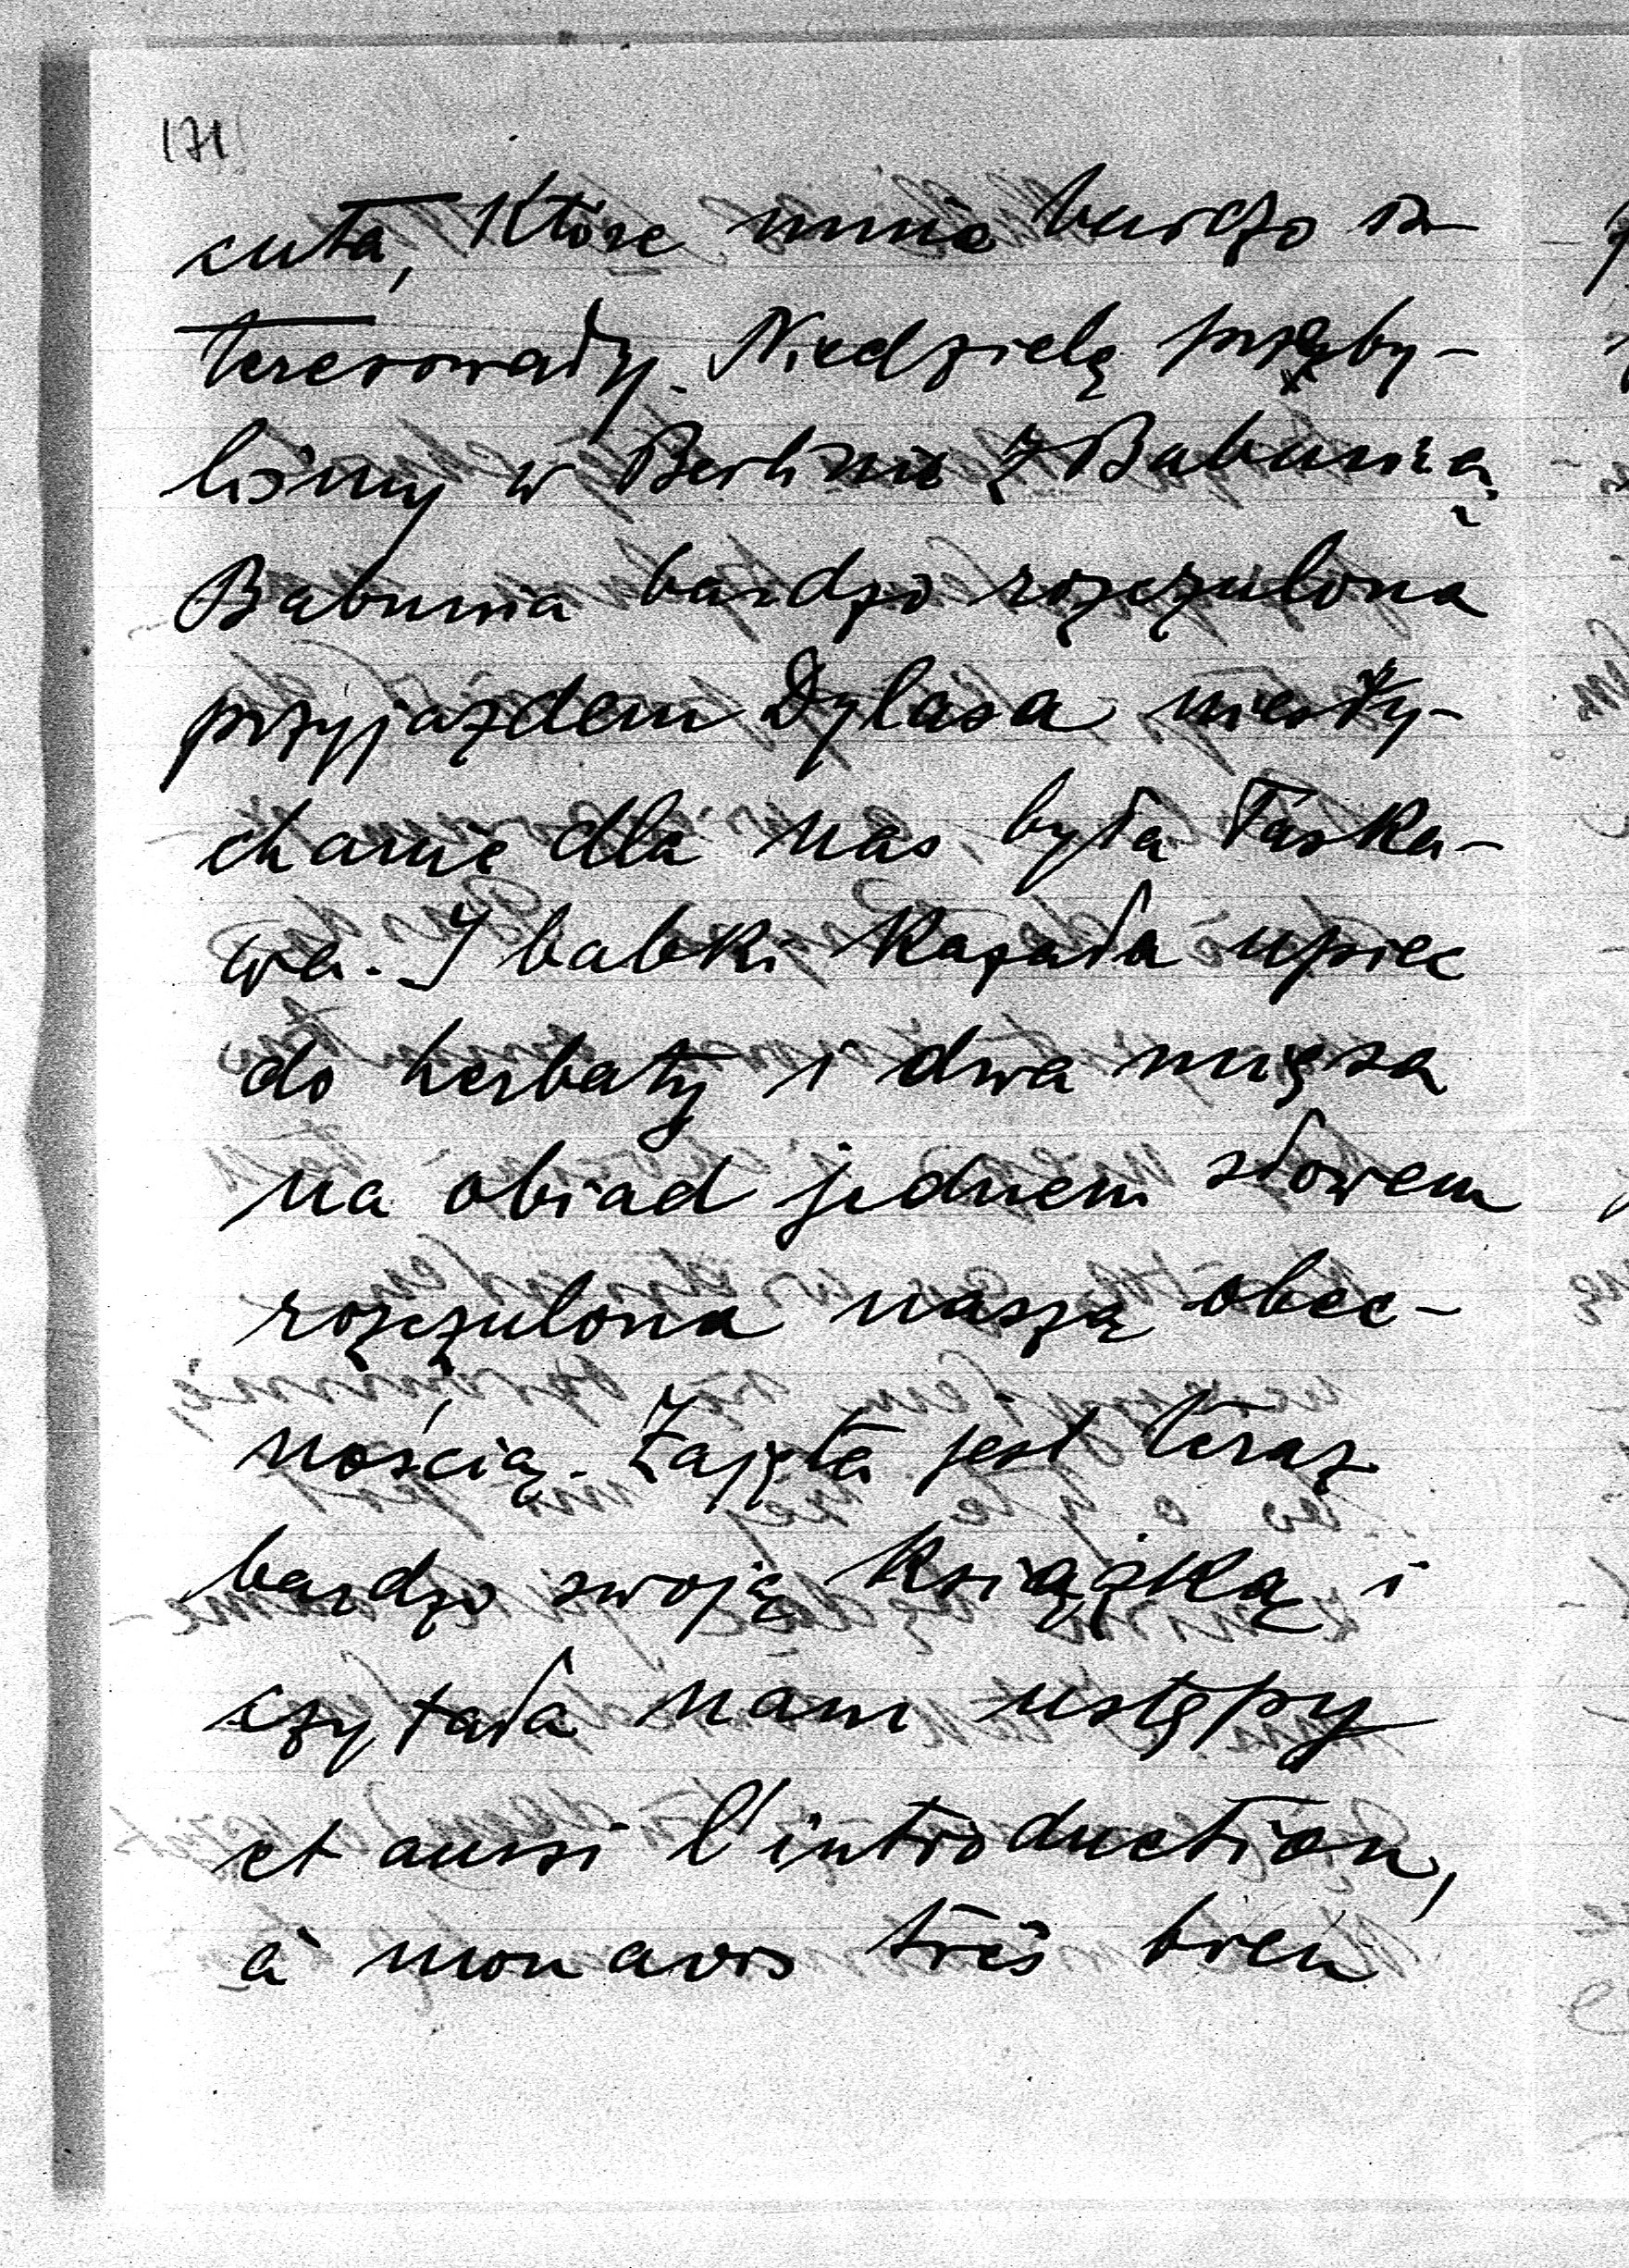 171
cuta, które mnie bardzo in-
teresowały. Niedzielę przeby-
liśmy w Berlinie z Babunią.
Babunia bardzo rozczulona
przyjazdem Dylasa niesły-
chanie dla nas była łaska-
wa. I babki kazała upiec
do herbaty i dwa mięsa
na obiad jednem słowem
rozczulona naszą obec-
nością. Zajęta jest teraz
bardzo swoją książką i
czytała nam ustępy
et aussi l'introduction,
à mon avis très bien